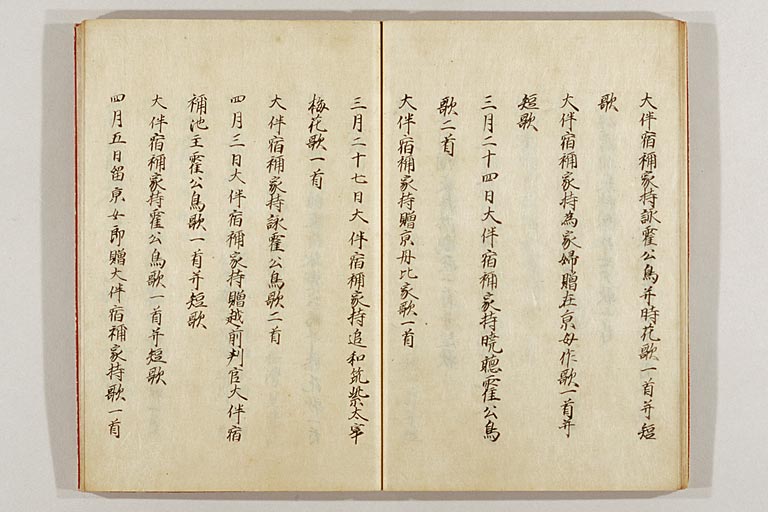 大伴宿祢家持詠霍公鳥并時花歌一首并短
歌
大伴宿祢家持為家婦贈在京母作歌一首并
短歌
三月二十四日大伴宿祢家持暁聴霍公鳥
歌二首
大伴宿祢家持贈京丹比家歌一首
三月二十七日大伴宿祢家持追和筑紫太宰
梅花歌一首
大伴宿祢家持詠霍公鳥歌二首
四月三日大伴宿祢家持贈越前判官大伴宿
祢池主霍公鳥歌一首并短歌
大伴宿祢家持霍公鳥歌一首并短歌
四月五日留京女郎贈大伴宿祢家持歌一首